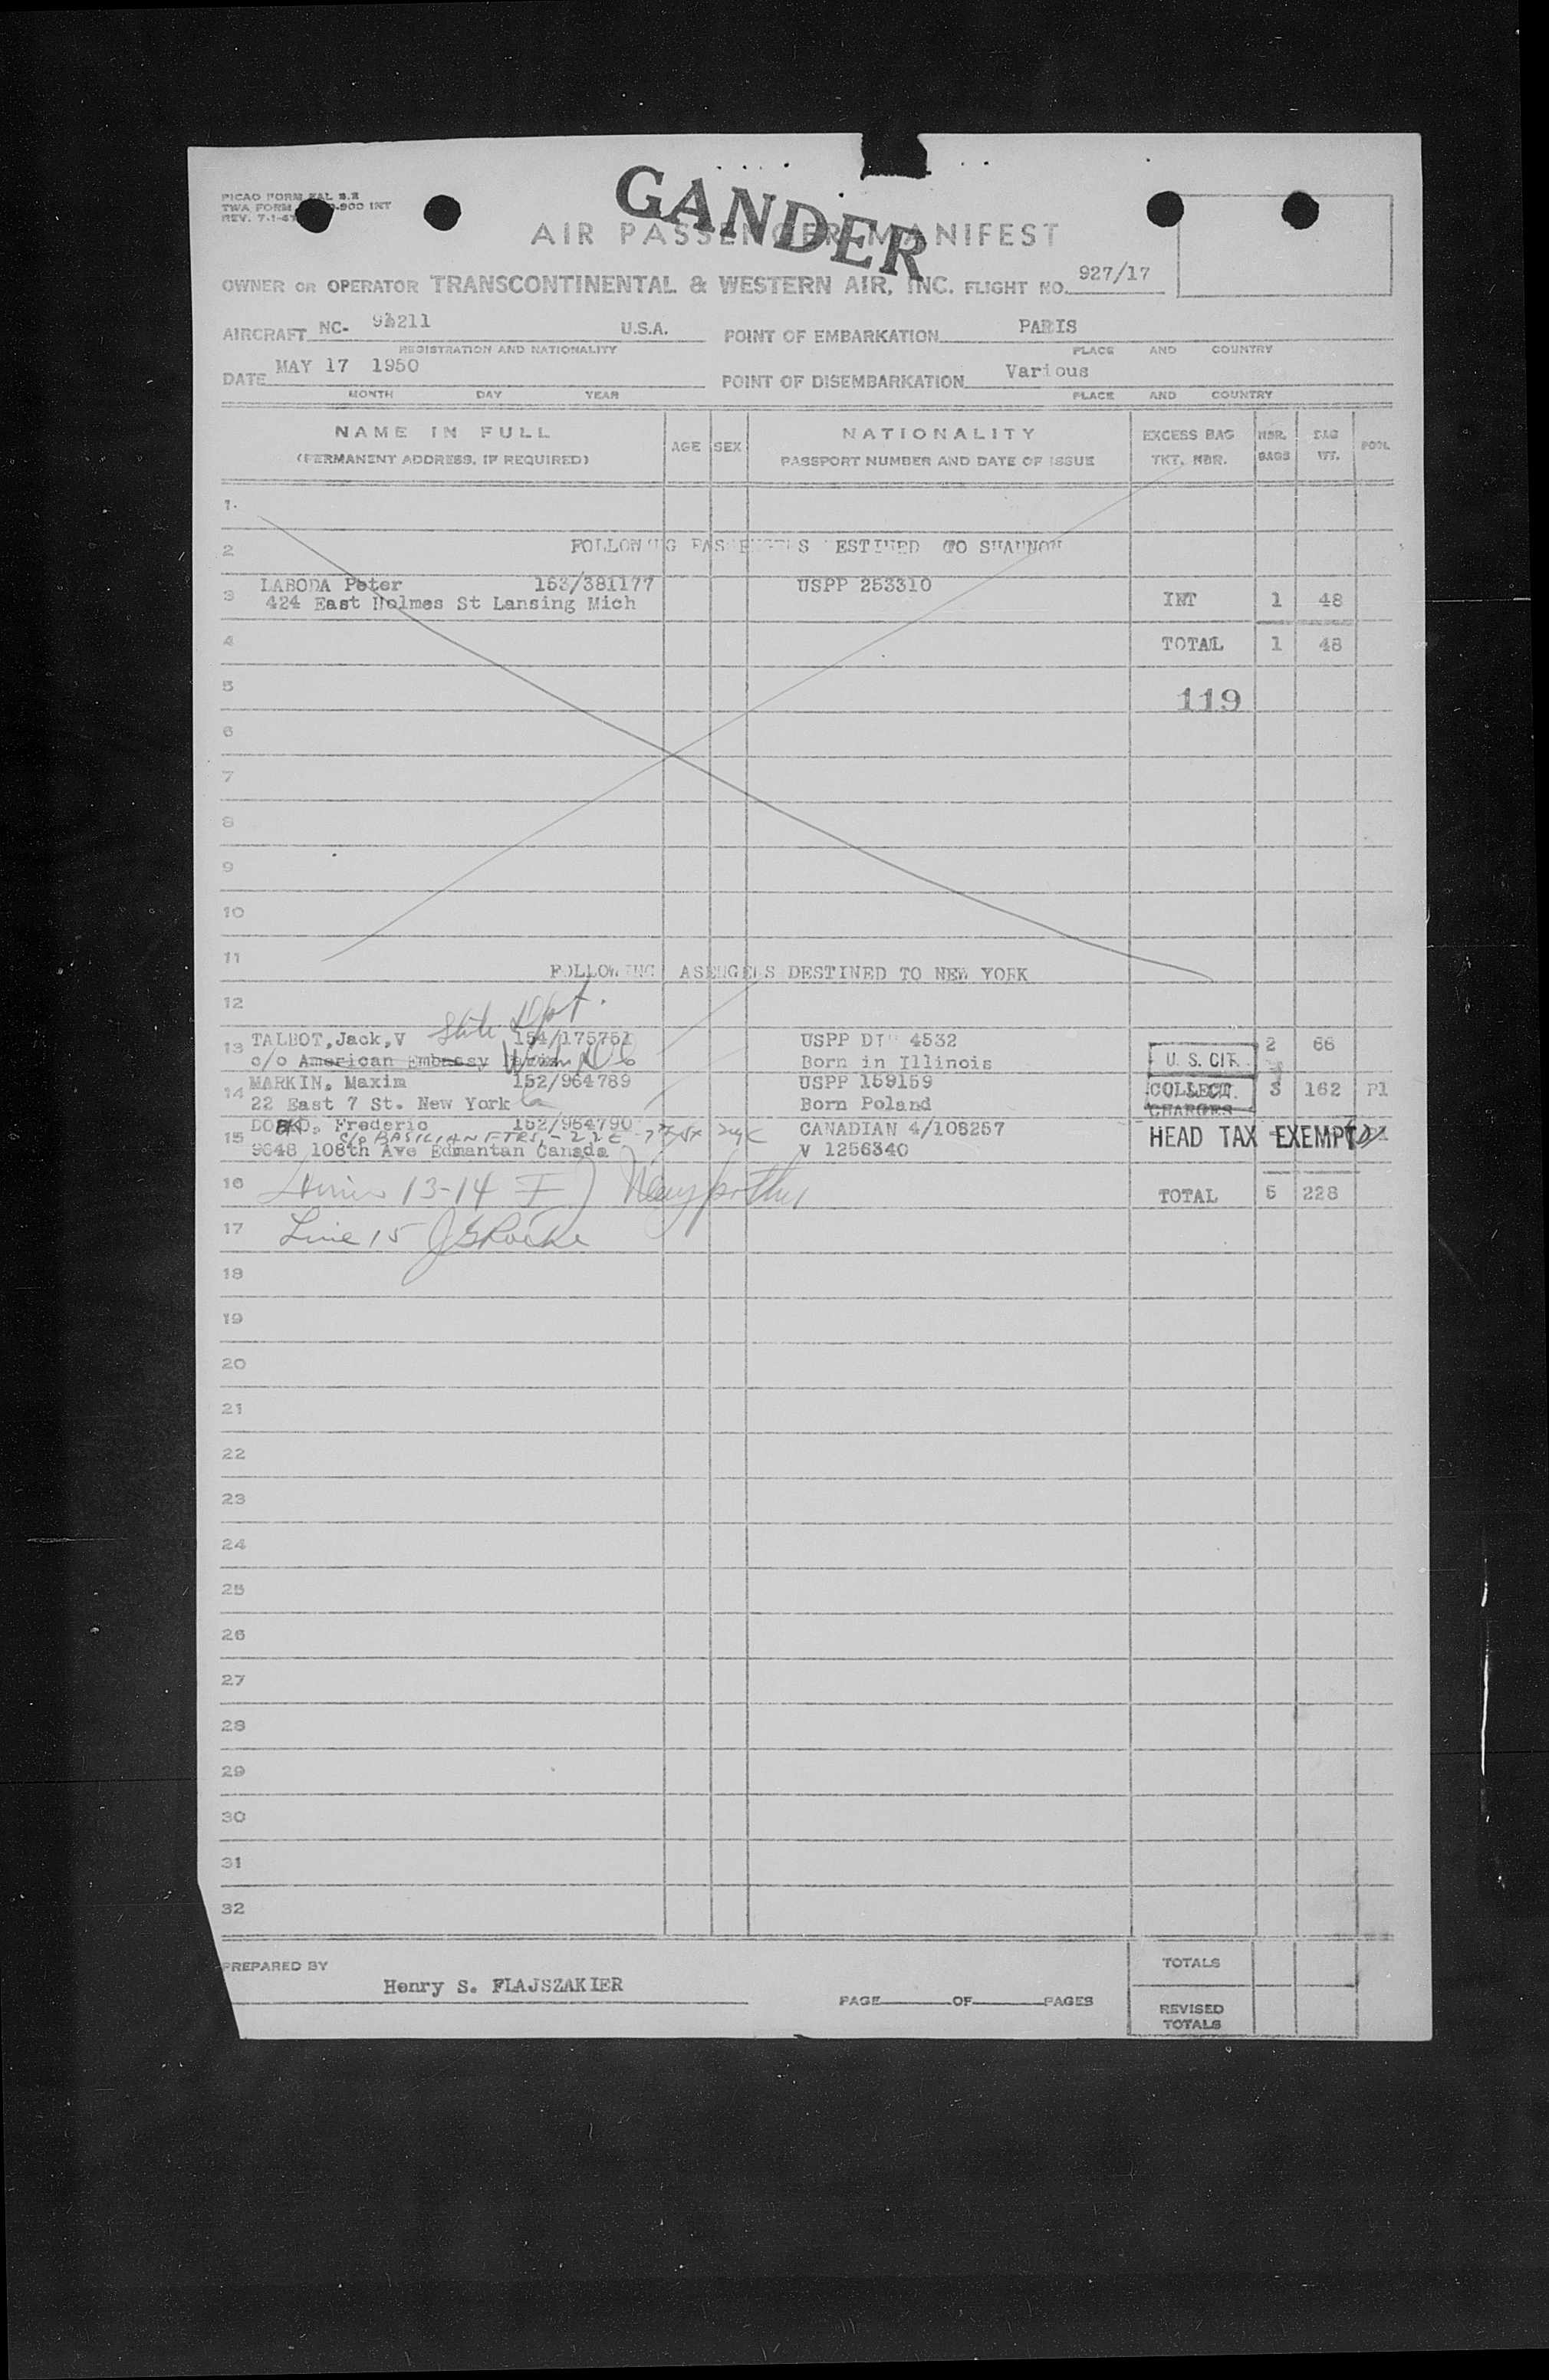 GANDER
PICAO FORM FAL
TWA FORM -900 INT
REV. 7-1-4
AIR PASSENGER MANIFEST
OWNER OR OPERATOR TRANSCONTINENTAL & WESTERN AIR, INC. FLIGHT NO. 927/17
AIRCRAFT NC- U.S.A. POINT OF EMBARKATION PARIS
REGISTRATION AND NATIONALITY PLACE AND COUNTRY
DATE MAY 17 1950 POINT OF DISEMBARKATION Various
MONTH DAY YEAR PLACE AND COUNTRY
NAME IN FULL AGE SEX NATIONALITY EXCESS BAG NBR. BAG POOL
(PERMANENT ADDRESS, IF REQUIRED) PASSPORT NUMBER AND DATE OF ISSUE TKT. NBR. BAGS WT.
1.
2 FOLLOWING PASSENGERS DESTINED TO SHANNON
3 LABODA Peter 153/381177 USPP 253310
424 East Holmes St Lansing Mich INT 1 48
4 TOTAL 1 48
5 119
6
7
8
9
10
11 FOLLOWING PASENGERS DESTINED TO NEW YORK
12 State Dpt.
13 TALBOT, Jack, V 154/175751 USPP 4532 2 66
c/o American Embassy Wash DC Born in Illinois U. S. CIT.
14 MARKIN. Maxim 152/964789 USPP 159159 COLLECT 3 162 P1
22 East 7 St. New York Born Poland CHARGES
15 Frederic 152/964790 CANADIAN 4/108257 HEAD TAX EXEMPT
c/o BASILIAN FTRS - 22 E 7th St NYC
9648 108th Ave Edmantan Canada V 1256340
16 13-14 TOTAL 5 228
17 Line 15
18
19
20
21
22
23
24
25
26
27
28
29
30
31
32
PREPARED BY TOTALS
Henry S. FLAJSZAKIER
PAGE OF PAGES REVISED
TOTALS